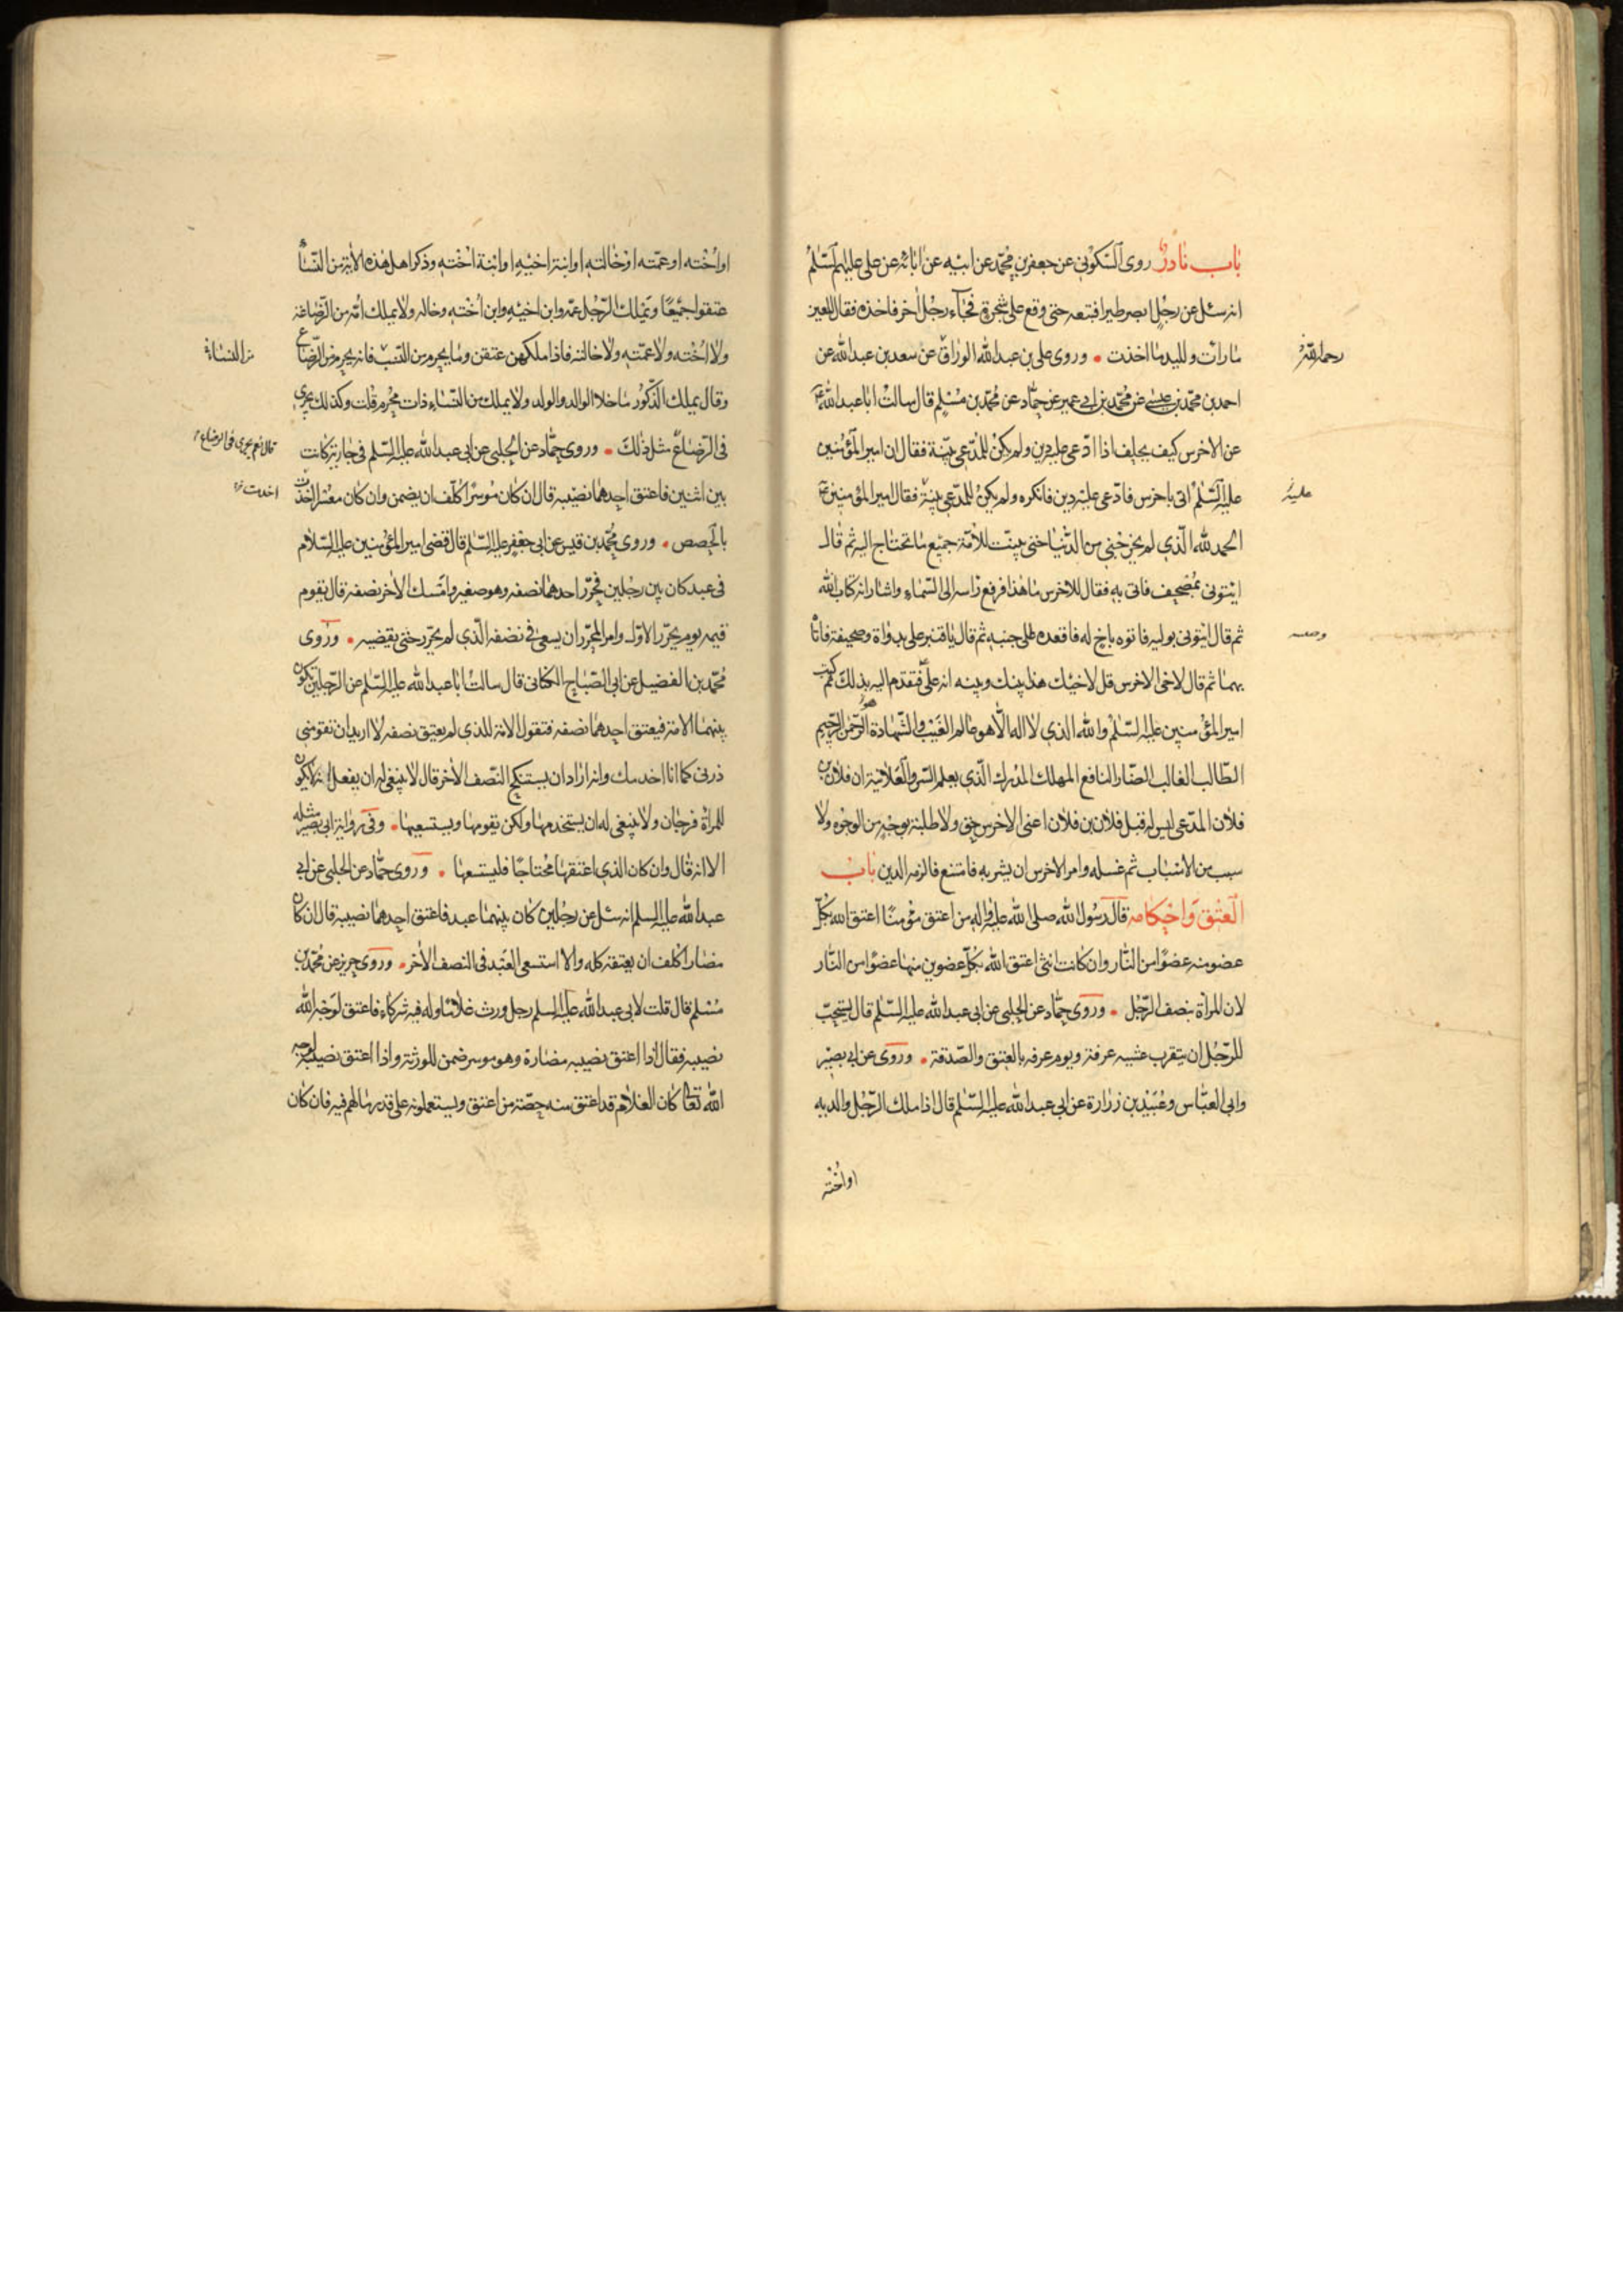 باب نادر روى السّكونى عن جعفر بن محمّد عن ابيه عن ابائه عن على عليهم السّلم
انه سئل عن رجل ابصر طيرا فتبعه حتى وقع على شجرة فجاء رجل اخر فاخذه فقال للعين
مارات ولليد ما اخذت • وروى على بن عبدالله الوراق عن سعد بن عبدالله عن
رحمه الله
احمد بن محمّد بن عيسى عن محمّد بن ابى عمير عن حمّاد عن محمّد بن مسلم قال سالت ابا عبدالله ع
عن الاخرس كيف يحلف اذا ادّعى عليه دين ولم يكن للمدّعى بيّنة فقال ان امير المؤمنين
عليه السّلم اتى باخرس فادّعى عليه دين فانكره ولم يكن للمدّعى بيّنة فقال امير المؤمنين ع
عليه
الحمد لله الّذى لم يخرجنى من الدّنيا حتى بينت للامّة جميع ما تحتاج اليه ثم قال
ايتونى بمصحف فاتى به فقال للاخرس ما هذا فرفع راسه الى السّماء واشار انه كتاب الله
ثم قال ايتونى بوليه فاتوه باخ له فاقعده على جنبه ثم قال يا قنبر على بدواة وصحيفة فاتا
بهما ثم قال لاخى الاخرس قل لاخيك هذا بينك وبينه انه علىّ فتقدم اليه بذلك ثم كتب
امير المؤمنين عليه السّلم والله الذى لا اله الّا هو عالم الغيب والشّهادة الرّحمن الرّحيم
الطّالب الغالب الضّار النافع المهلك المدرك الّذى يعلم السّر والعلانية ان فلان بن
فلان المدّعى ليس له قبل فلان بن فلان اعنى الاخرس حق ولا طلبة بوجه من الوجوه ولا
سبب من الاسباب ثم غسله وامر الاخرس ان يشربه فامتنع فالزمه الدين باب
العتق واحكامه قال رسول الله صلى الله عليه واله من اعتق مؤمنا اعتق الله بكل
عضو منه عضوا من النّار وان كانت انثى اعتق الله بكل عضوين منها عضوا من النّار
لان المراة بنصف الرّجل • وروى حمّاد عن الحلبى عن ابى عبدالله عليه السّلم قال يستحبّ
للرّجل ان يتقرب عشيه عرفة ويوم عرفه بالعتق والصّدقة • وروى عن ابى بصير
وابى العبّاس وعبيد بن زرارة عن ابى عبدالله عليه السّلم قال اذا ملك الرّجل والديه
او اخته
او اخته او عمّته او خالته او ابنة اخيه او ابنة اخته وذكر اهل هذه الاية من النّساء
عتقوا جميعا ويملك الرّجل عمّه وابن اخيه وابن اخته وخاله ولا يملك امّه من الرّضاعة
ولا اخته ولا عمّته ولا خالته فاذا ملكهن عتقن وما يحرم من النّسب فانه يحرم من الرّضاع
من النساء
وقال يملك الذّكور ما خلا الوالد والولد ولا يملك من النّساء ذات محرم قلت وكذلك يجرى
فى الرّضاع مثل ذلك • وروى حمّاد عن الحلبى عن ابى عبدالله عليه السّلم فى جارية كانت
قال نعم يجرى فى الرضاع
بين اثنين فاعتق احدهما نصيبه قال ان كان موسرا كلّف ان يضمن وان كان معسرا اخذت
اخدمت
بالحصص • وروى محمّد بن قيس عن ابى جعفر عليه السّلم قال قضى امير المؤمنين عليه السّلام
فى عبد كان بين رجلين فحرّر احدهما نصفه وهو صغير وامسك الاخر نصفه قال يقوم
قيمه يوم يحرّر الاوّل وامر المحرّر ان يسعى فى نصفه الّذى لم يحرّر حتى يقضيه • وروى
محمّد بن الفضيل عن ابى الصّباح الكنانى قال سالت ابا عبدالله عليه السّلم عن الرّجلين تكون
بينهما الامة فيعتق احدهما نصفه فتقول الامة للذى لم يعتق نصفه لا اريد ان تقومنى
ذرنى كما انا اخدمك وانه اراد ان يستنكح النّصف الاخر قال لا ينبغى له ان يفعل انه لا يكون
للمراة فرجان ولا ينبغى له ان يستخدمها ولكن يقومها ويستسعيها • وفى رواية ابى بصير مثله
الا انه قال وان كان الذى اعتقها محتاجا فليستسعها • وروى حمّاد عن الحلبى عن ابى
عبدالله عليه السلم انه سئل عن رجلين كان بينهما عبد فاعتق احدهما نصيبه قال ان كان
مضارا كلف ان يعتقه كله والا استسعى العبد فى النصف الاخر • وروى حريز عن محمّد بن
مسلم قال قلت لابى عبدالله عليه السلم رجل ورث غلاما وله فيه شركاء فاعتق لوجه الله
نصيبه فقال اذا اعتق نصيبه مضارة وهو موسر ضمن للورثة واذا اعتق نصيبه لوجه
الله تعالى كان الغلام قد اعتق منه حصّة من اعتق ويستعملونه على قدر مالهم فيه فان كان